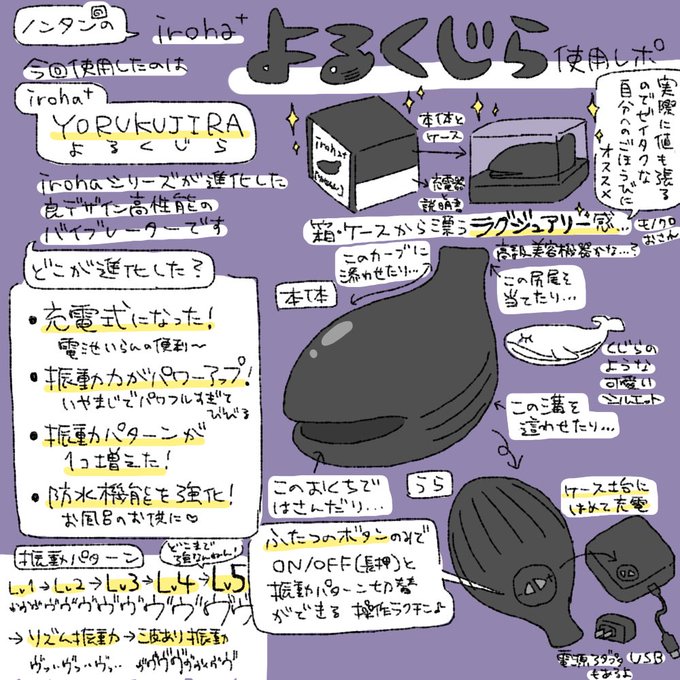 ノンタンの回
iroha+
よるくじら
使用レポ
今回使用したのは
iroha+
YORUKUJIRA
よるくじら
irohaシリーズが進化した
良デザイン高性能の
バイブレーターです
どこが進化した?
・充電式になった!
電池いらんの便利〜
・振動力がパワーアップ!
いやまじでパワフルすぎて
びびる
・振動パターンが
1コ増えた!
・防水機能を強化!
お風呂のお供に♡
振動パターン
どこまで
強なんねん!
Lv1→Lv2→Lv3→Lv4→Lv5
→リズム振動→波あり振動
ヴッ‥ヴッ‥ヴッ‥
iroha+
本体と
ケース
充電器
説明書
実際に値も張る
のでゼイタクな
自分へのごほうびに
オススメ
箱・ケースから漂うラグジュアリー感…
モノクロ
おさん
高級美容機器かな…?
このカーブに
添わせたり…
本体
この尻尾を
当てたり…
くじらの
ような
可愛い
シルエット
この溝を
這わせたり…
このおくちで
はさんだり…
うら
ケース土台に
はめて充電
ふたつのボタンのみで
ON/OFF(長押)と
振動パターン切替
ができる 操作ラクチン♪
電源アダプタ
もあるよ
USB